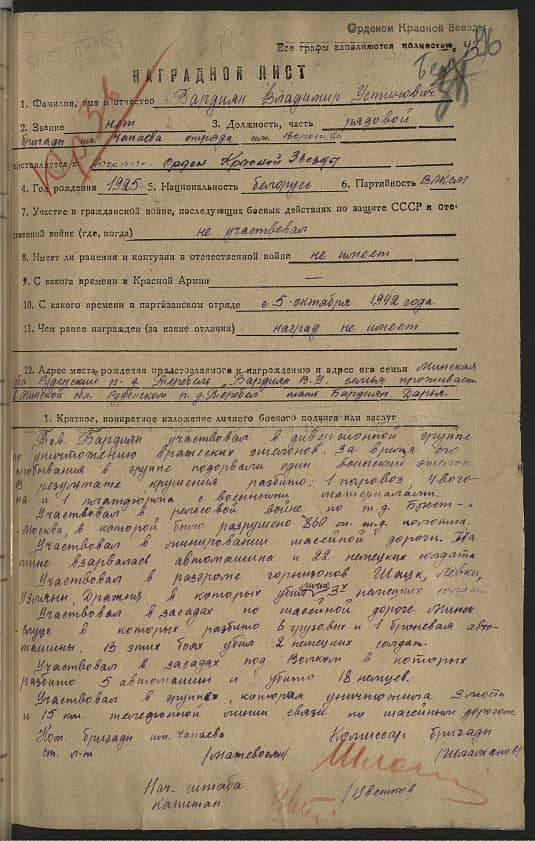 Орденом Красной Звезды
Все графы заполняются полностью
НАГРАДНОЙ ЛИСТ
1. Фамилия, имя и отчество Бардиян Владимир Устинович
2. Звание нет 3. Должность, часть рядовой
бригады им. Чапаева отряда им. Воронова
Орден Красной Звезды
4. Год рождения 1925 5. Национальность белорусс 6. Партийность ВЛКСМ
7. Участие в гражданской войне, последующих боевых действиях по защите СССР и оте-
ственной войне (где, когда) не участвовал
8. Имеет ли ранения и контузии в отечественной войне не имеет
9. С какого времени в Красной Армии —
10. С какого времени в партизанском отряде с 5 октября 1942 года.
11. Чем ранее награжден (за какие отличия) наград не имеет
12. Адрес места рождения представляемого к награждению и адрес его семьи Минская
обл. Руденский р-н д. Теребель Бардиян В.У. семья проживает
Минской обл. Руденском р. д. Теребел мать Бардиян Дарья.
1. Краткое, конкретное изложение личного боевого подвига или заслуг
Тов. Бардиян участвовал в диверсионной группе
по уничтожению вражеских эшелонов. За время его
пребывания в группе подорвали один воинский эшелон
В результате крушения разбито: 1 паровоз 4 ваго-
на и 1 платформа с военными материалами.
Участвовал в рельсовой войне по ж.д. Брест-
Москва, в которой было разрушено 360 м. ж.д. полотна.
Участвовал в минировании шассейной дороги. На
мине взорвалась автомашина и 22 немецких солдата
Участвовал в разгроме горнизонов Шацк, Левки,
Узляны, Дражня в которых убил лично 3х немецких солдат
Участвовал в засадах по шассейной дороге Минск
-Слуцк в которых разбито 6 грузовых и 1 броневая авто-
машины. В этих боях убил 2 немецких солдат.
Участвовал в засадах под Волком в которых
разбито 5 автомашин и убито 18 немцев.
Участвовал в группе, которая уничтожила 3 моста
и 15 км. телефонной линии связи по шассейным дорогам
Ком. бригады им. Чапаева Комиссар бригады
ст. л-т /Матевосян/ /Шлапаков/
Нач. штаба
капитан /Цветков